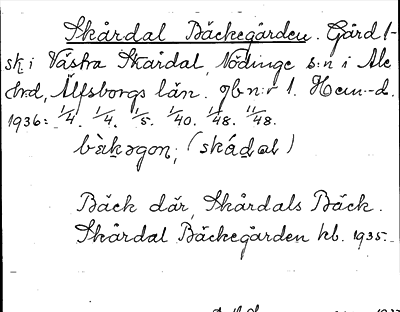 Skårdal Bäckegården. Gård l-
sk i Västra Skårdal, Nödinge s:n i Ale
hrd, Älfsborgs län. gbn:r 1. Hem.-d.
1936: 1/4. 1/4. 1/5. 1/40. 1/48. 11/48.
bäkəgon, (skádal)
Bäck där, Skårdals Bäck.
Skårdal Bäckegården kb. 1935.